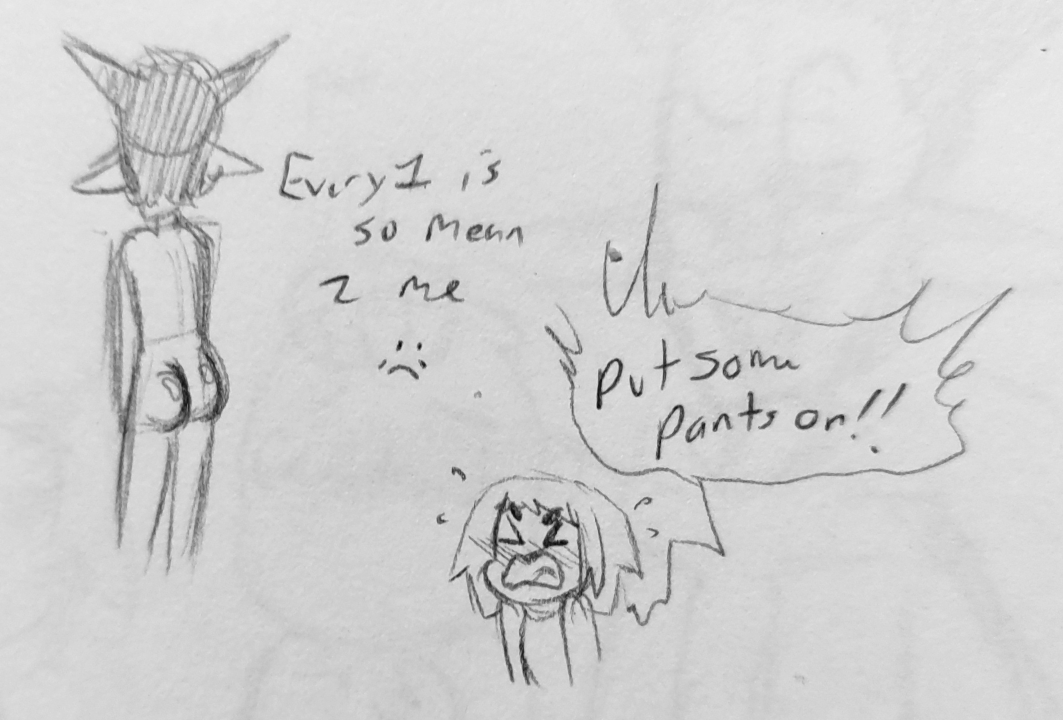 Every1 is
so mean
2 me
:(
put some
pants on!!